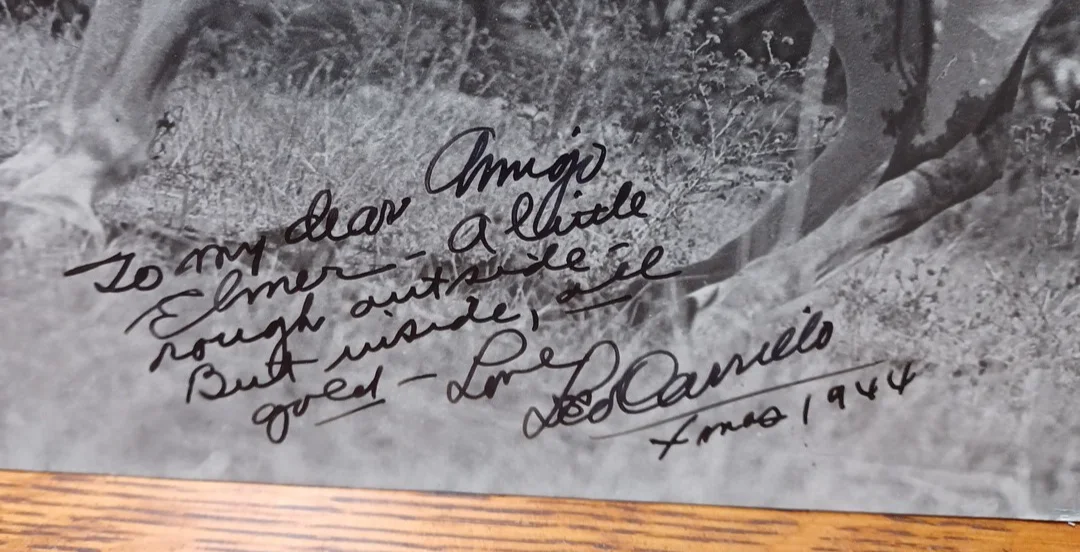 To my dear Amigo
Elmer - A little
rough outside -
But inside, all
gold - Love
Leo Carrillo
Xmas 1944